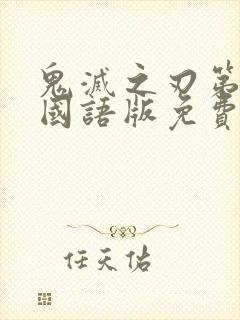 鬼滅之刃第
國語版免費
任天佑